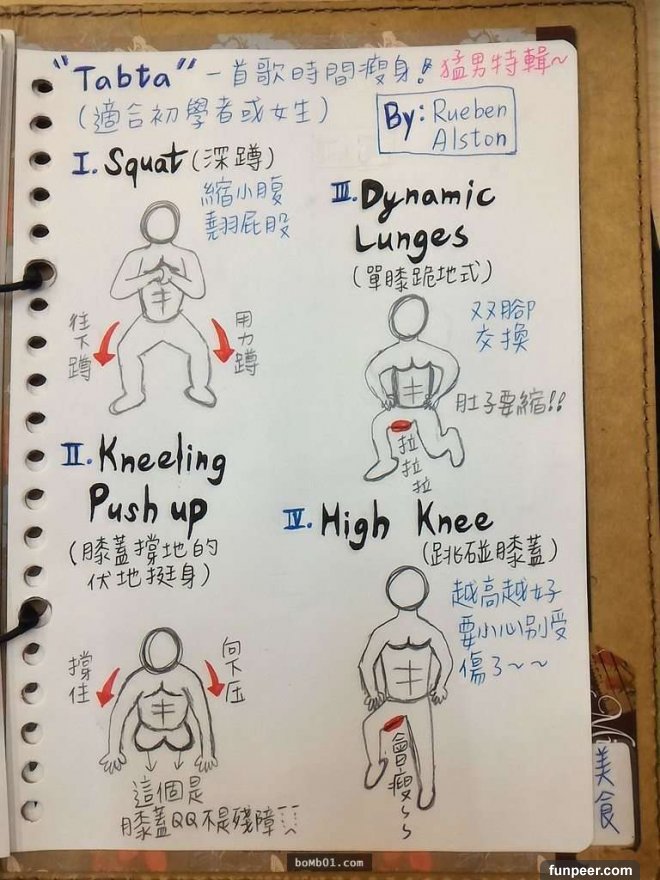 "Tabta" 一首歌時間瘦身! 猛男特輯~
(適合初學者或女生)
By: Rueben
Alston
I. Squat (深蹲)
縮小腹
翹屁股
往下蹲
用力蹲
II. Kneeling
Push up
(膝蓋撐地的
伏地挺身)
撐住
向下压
這個是
膝蓋QQ不是殘障
III. Dynamic
Lunges
(單膝跪地式)
双腳
交換
肚子要縮!!
拉
拉
拉
IV. High Knee
(跳碰膝蓋)
越高越好
要小心別受
傷了~~
會瘦~~
美食
boMb01.com
funpeer.com